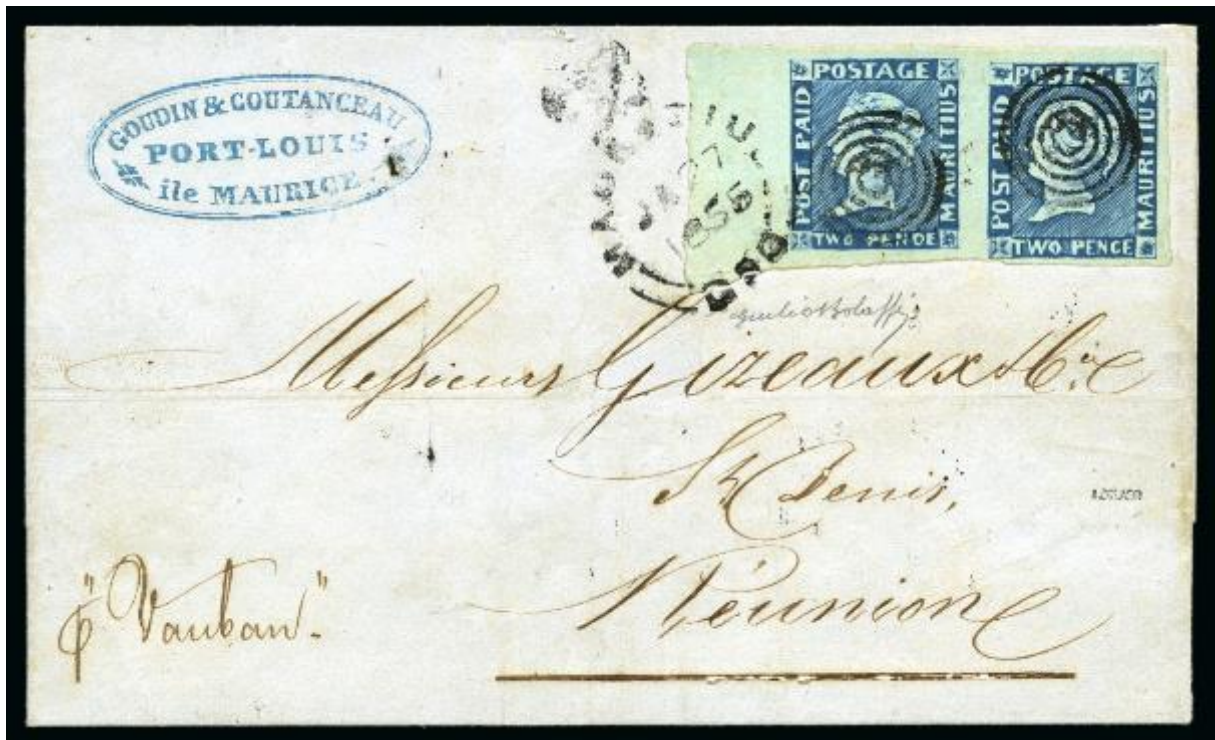 GOUDIN & COUTANCEAU
PORT-LOUIS
île MAURICE
POSTAGE
POST PAID
MAURITIUS
TWO PENOE
POSTAGE
POST PAID
MAURITIUS
TWO PENCE
1855
Messieurs Gizeaux & Cie
St Denis,
Réunion
p "Vauban"